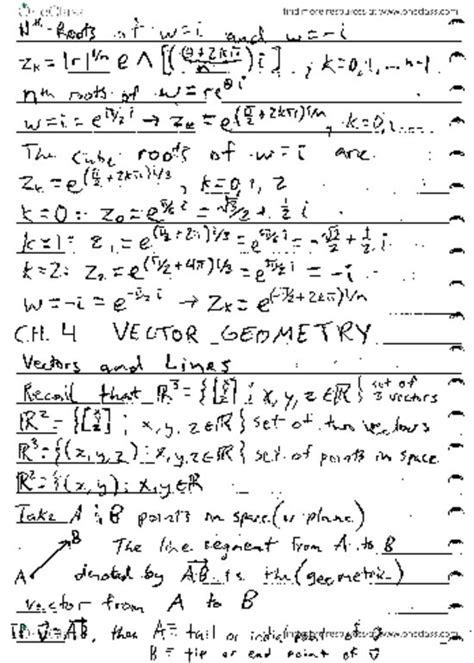 OneClass find more resources at www.oneclass.com
Nth Roots of w=i and w=-i
z_k = |r|^{1/n} e^[((θ+2kπ)/n) i] ; k=0,1,...n-1
nth roots of w=re^{θi}
w=i=e^{π/2 i} → z_k=e^{(π/2+2kπ)i/n}, k=0,1,...
The cube roots of w=i are
z_k=e^{(π/2+2kπ)i/3}, k=0,1,2
k=0: z_0=e^{π/6 i}=√3/2+1/2 i
k=1: z_1=e^{(π/2+2π)i/3}=e^{5π/6 i}=-√3/2+1/2 i
k=2: z_2=e^{(π/2+4π)i/3}=e^{3π/2 i}=-i
w=-i=e^{-π/2 i} → z_k=e^{(-π/2+2kπ)i/n}
CH. 4 VECTOR GEOMETRY
Vectors and Lines
Recall that ℝ³={[x y z] ; x,y,z∈ℝ} set of 3 vectors
ℝ²={[x y] ; x,y,z∈ℝ} set of two vectors
ℝ³={(x,y,z): x,y,z∈ℝ} set of points in space
ℝ²={(x,y): x,y∈ℝ
Take A & B points in space (or plane)
B
The line segment from A to B
A denoted by AB is the (geometric)
vector from A to B
If v=AB, then A= tail or of v
find more resources at www.oneclass.com
B= tip or end point of v